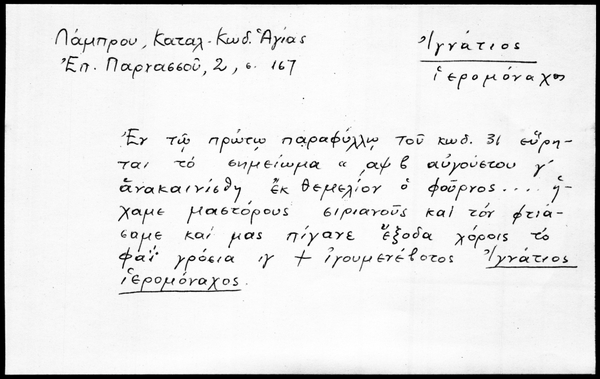 Λάμπρου, Καταλ. Κωδ. Ἁγίας
Ἐπ. Παρνασσοῦ, 2, σ. 167
Ἰγνάτιος
ἱερομόναχος
Ἐν τῷ πρώτῳ παραφύλλῳ τοῦ κωδ. 31 εὕρη-
ται τὸ σημείωμα « ͵αψβ αὐγούστου γ΄
ἀνακαινίσθη ἐκ θεμελίον ὁ φοῦρνος.... ἤ-
χαμε μαστόρους σιριανοῦς καὶ τὸν φτιά-
σαμε καὶ μας πίγανε ἔξοδα χόροις τὸ
φαΐ γρόσια ιγ + ἰγουμενέβοτος Ἰγνάτιος
ἱερομόναχος.